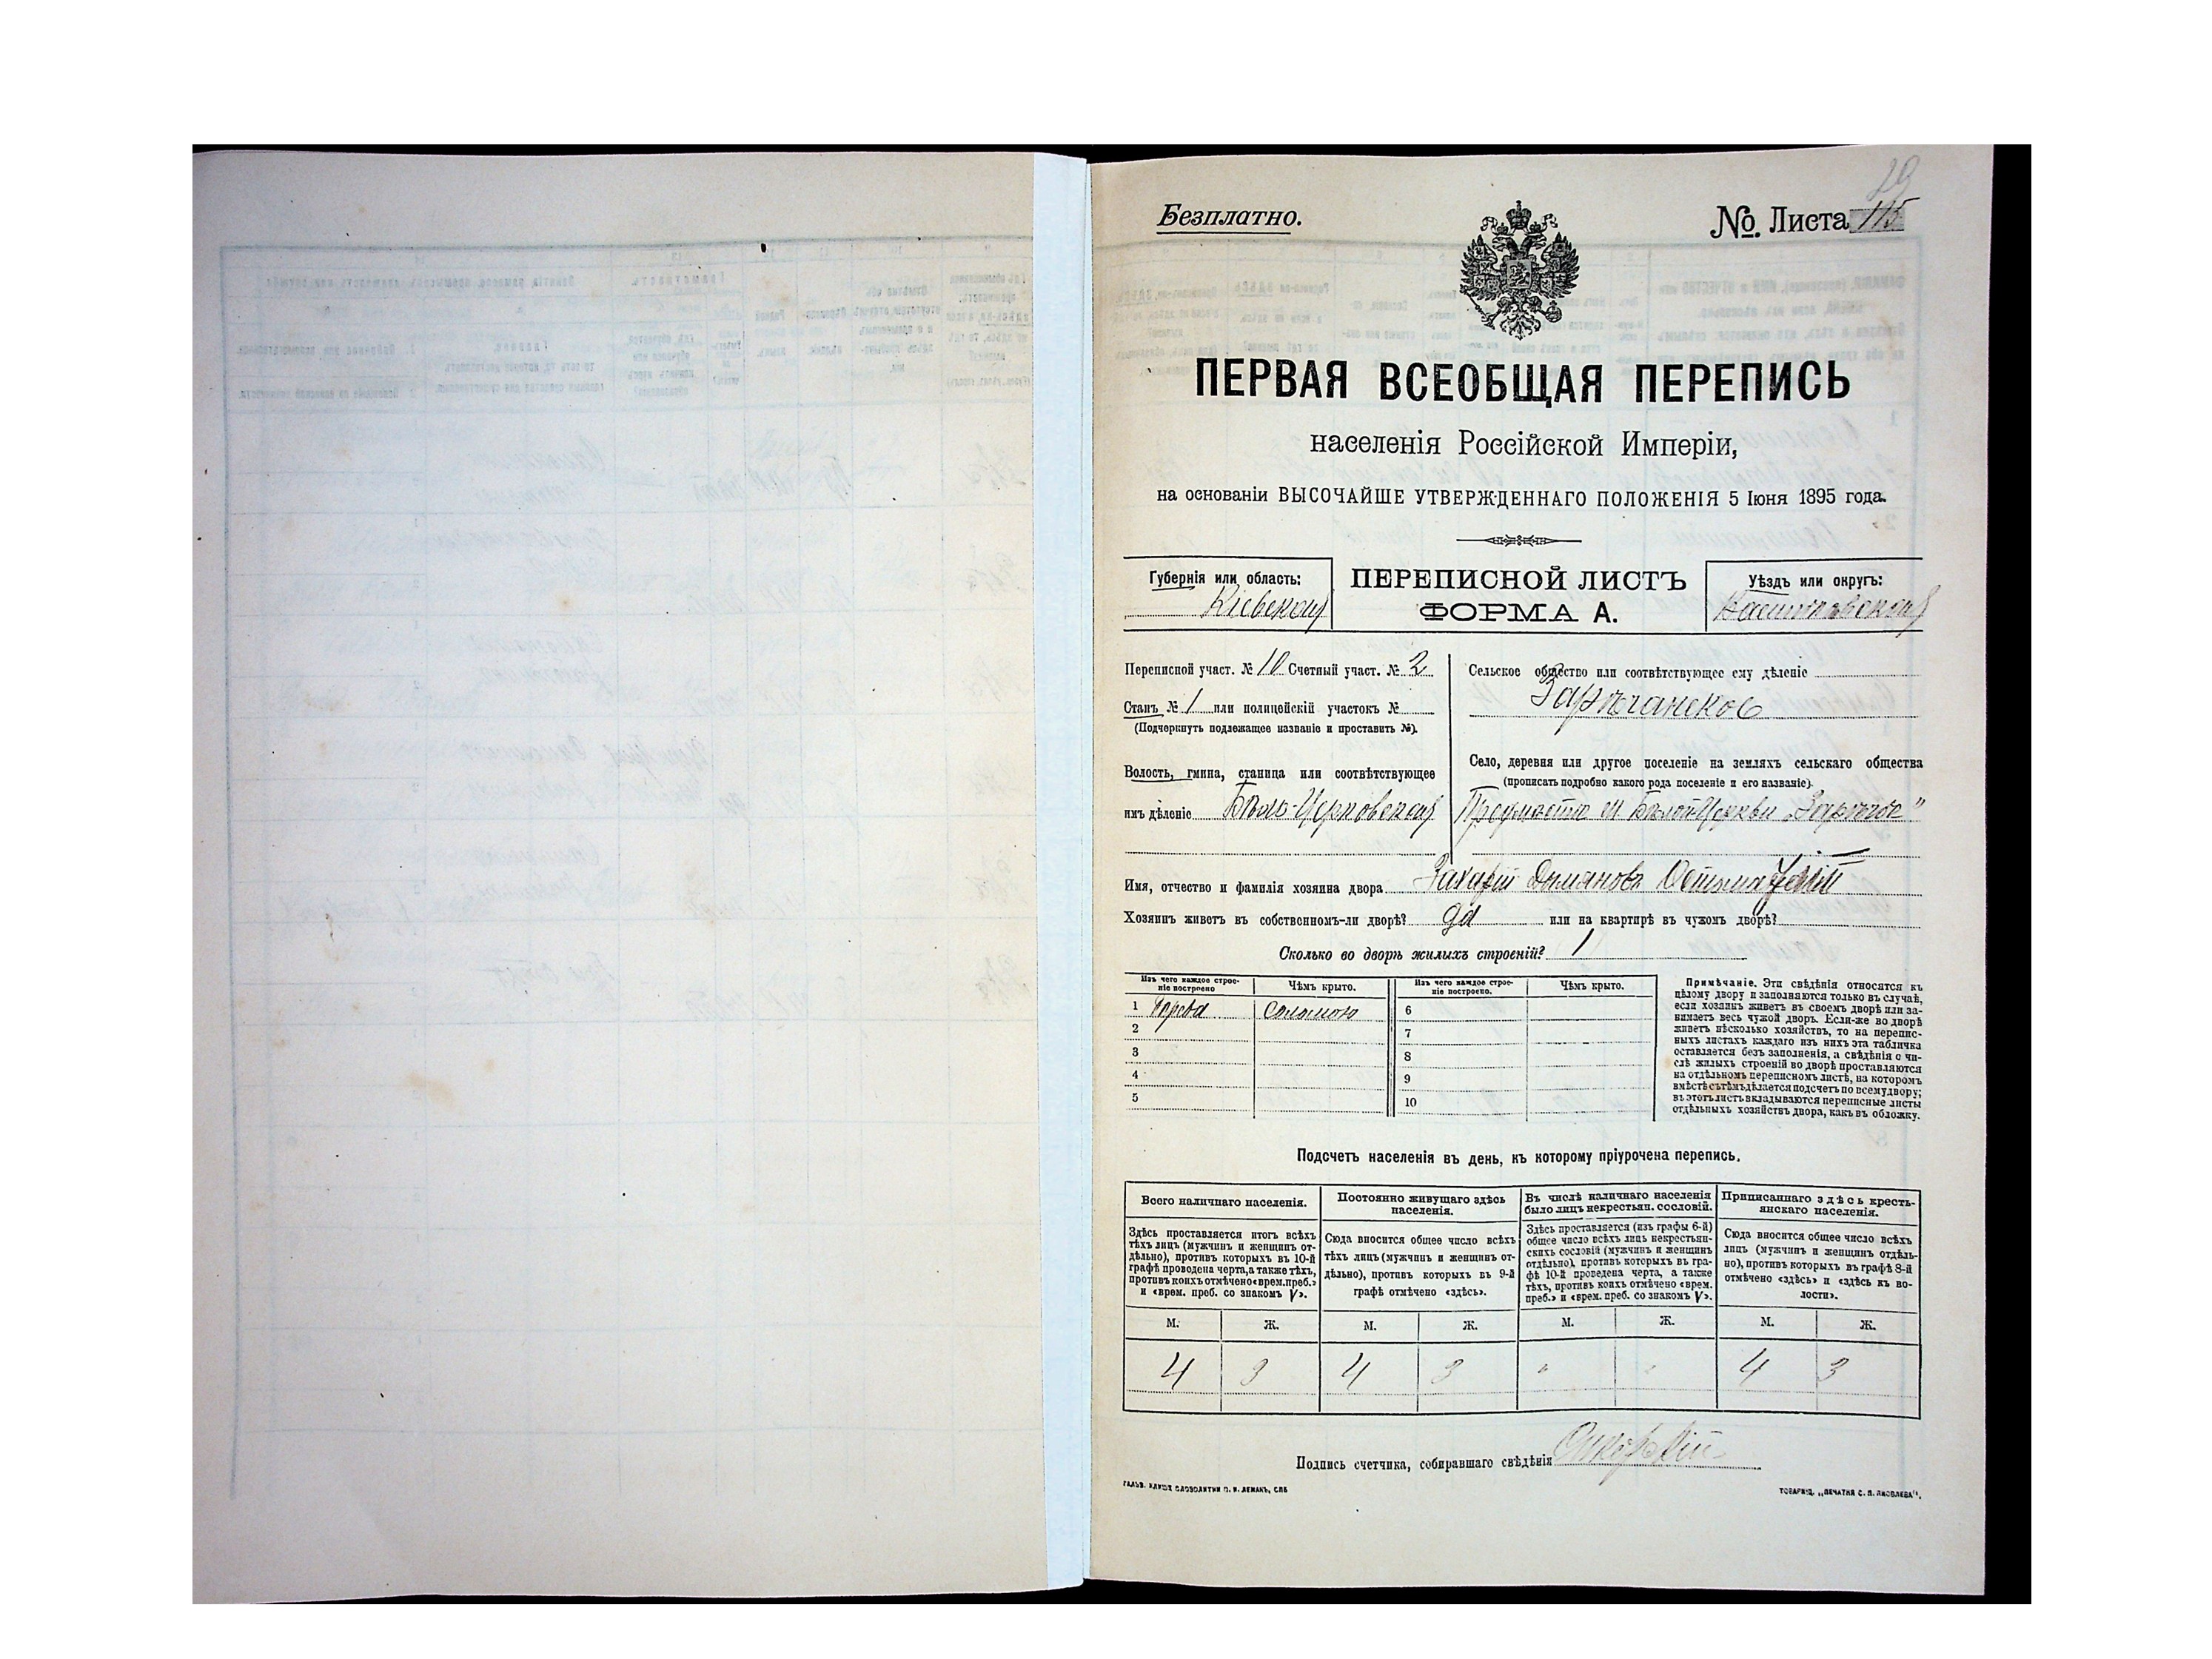 29
Безплатно.
№. Листа 115
ПЕРВАЯ ВСЕОБЩАЯ ПЕРЕПИСЬ
населенія Россійской Имперіи,
на основаніи ВЫСОЧАЙШЕ УТВЕРЖДЕННАГО ПОЛОЖЕНІЯ 5 Іюня 1895 года.
Губернія или область:
Кіевская
ПЕРЕПИСНОЙ ЛИСТЪ
ФОРМА А.
Уѣздъ или округъ:
Васильковскій
Переписной участ. № 10 Счетный участ. № 2
Станъ № 1 или полицейскій участокъ №
(Подчеркнуть подлежащее названіе и проставить №).
Волость, гмина, станица или соотвѣтствующее
имъ дѣленіе Бѣло-Церковская
Сельское общество или соотвѣтствующее ему дѣленіе
Зарѣчанское
Село, деревня или другое поселеніе на земляхъ сельскаго общества
(прописать подробно какого рода поселеніе и его названіе).
Предмѣстье м Бѣлой Церкви „Зарѣчье"
Имя, отчество и фамилія хозяина двора Захарій
Хозяинъ живетъ въ собственномъ-ли дворѣ? да или на квартирѣ въ чужомъ дворѣ?
Сколько во дворѣ жилыхъ строеній? 1
Изъ чего каждое строе-
ніе построено
Чѣмъ крыто.
Изъ чего каждое строе-
ніе построено.
Чѣмъ крыто.
1 дерева соломою 6
2 7
3 8
4 9
5 10
Примѣчаніе. Эти свѣдѣнія относятся къ
цѣлому двору и заполняются только въ случаѣ,
если хозяинъ живетъ въ своемъ дворѣ или за-
нимаетъ весь чужой дворъ. Если-же во дворѣ
живетъ нѣсколько хозяйствъ, то на перепис-
ныхъ листахъ каждаго изъ нихъ эта табличка
оставляется безъ заполненія, а свѣдѣнія о чи-
слѣ жилыхъ строеній во дворѣ проставляются
на отдѣльномъ переписномъ листѣ, на которомъ
вмѣстѣ съ тѣмъ дѣлается подсчетъ по всему двору;
въ этотъ листъ вкладываются переписные листы
отдѣльныхъ хозяйствъ двора, какъ въ обложку.
Подсчетъ населенія въ день, къ которому пріурочена перепись.
Всего наличнаго населенія.
Здѣсь проставляется итогъ всѣхъ
тѣхъ лицъ (мужчинъ и женщинъ от-
дѣльно), противъ которыхъ въ 10-й
графѣ проведена черта, а также тѣхъ,
противъ коихъ отмѣчено «врем. преб.»
и «врем. преб. со знакомъ V».
Постоянно живущаго здѣсь
населенія.
Сюда вносится общее число всѣхъ
тѣхъ лицъ (мужчинъ и женщинъ от-
дѣльно), противъ которыхъ въ 9-й
графѣ отмѣчено «здѣсь».
Въ числѣ наличнаго населенія
было лицъ некрестьян. сословій.
Здѣсь проставляется (изъ графы 6-й)
общее число всѣхъ лицъ некрестьян-
скихъ сословій (мужчинъ и женщинъ
отдѣльно), противъ которыхъ въ гра-
фѣ 10-й проведена черта, а также
тѣхъ, противъ коихъ отмѣчено «врем.
преб.» и «врем. преб. со знакомъ V».
Приписаннаго здѣсь кресть-
янскаго населенія.
Сюда вносится общее число всѣхъ
лицъ (мужчинъ и женщинъ отдѣль-
но), противъ которыхъ въ графѣ 8-й
отмѣчено «здѣсь» и «здѣсь къ во-
лости».
М. Ж. М. Ж. М. Ж. М. Ж.
4 3 4 3 " " 4 3
Подпись счетчика, собиравшаго свѣдѣнія
ГАЛЬВ. КЛИШЕ СЛОВОЛИТНИ О. И. ЛЕМАНЪ, СПБ
ТОВАРИЩ. „ПЕЧАТНЯ С. П. ЯКОВЛЕВА".